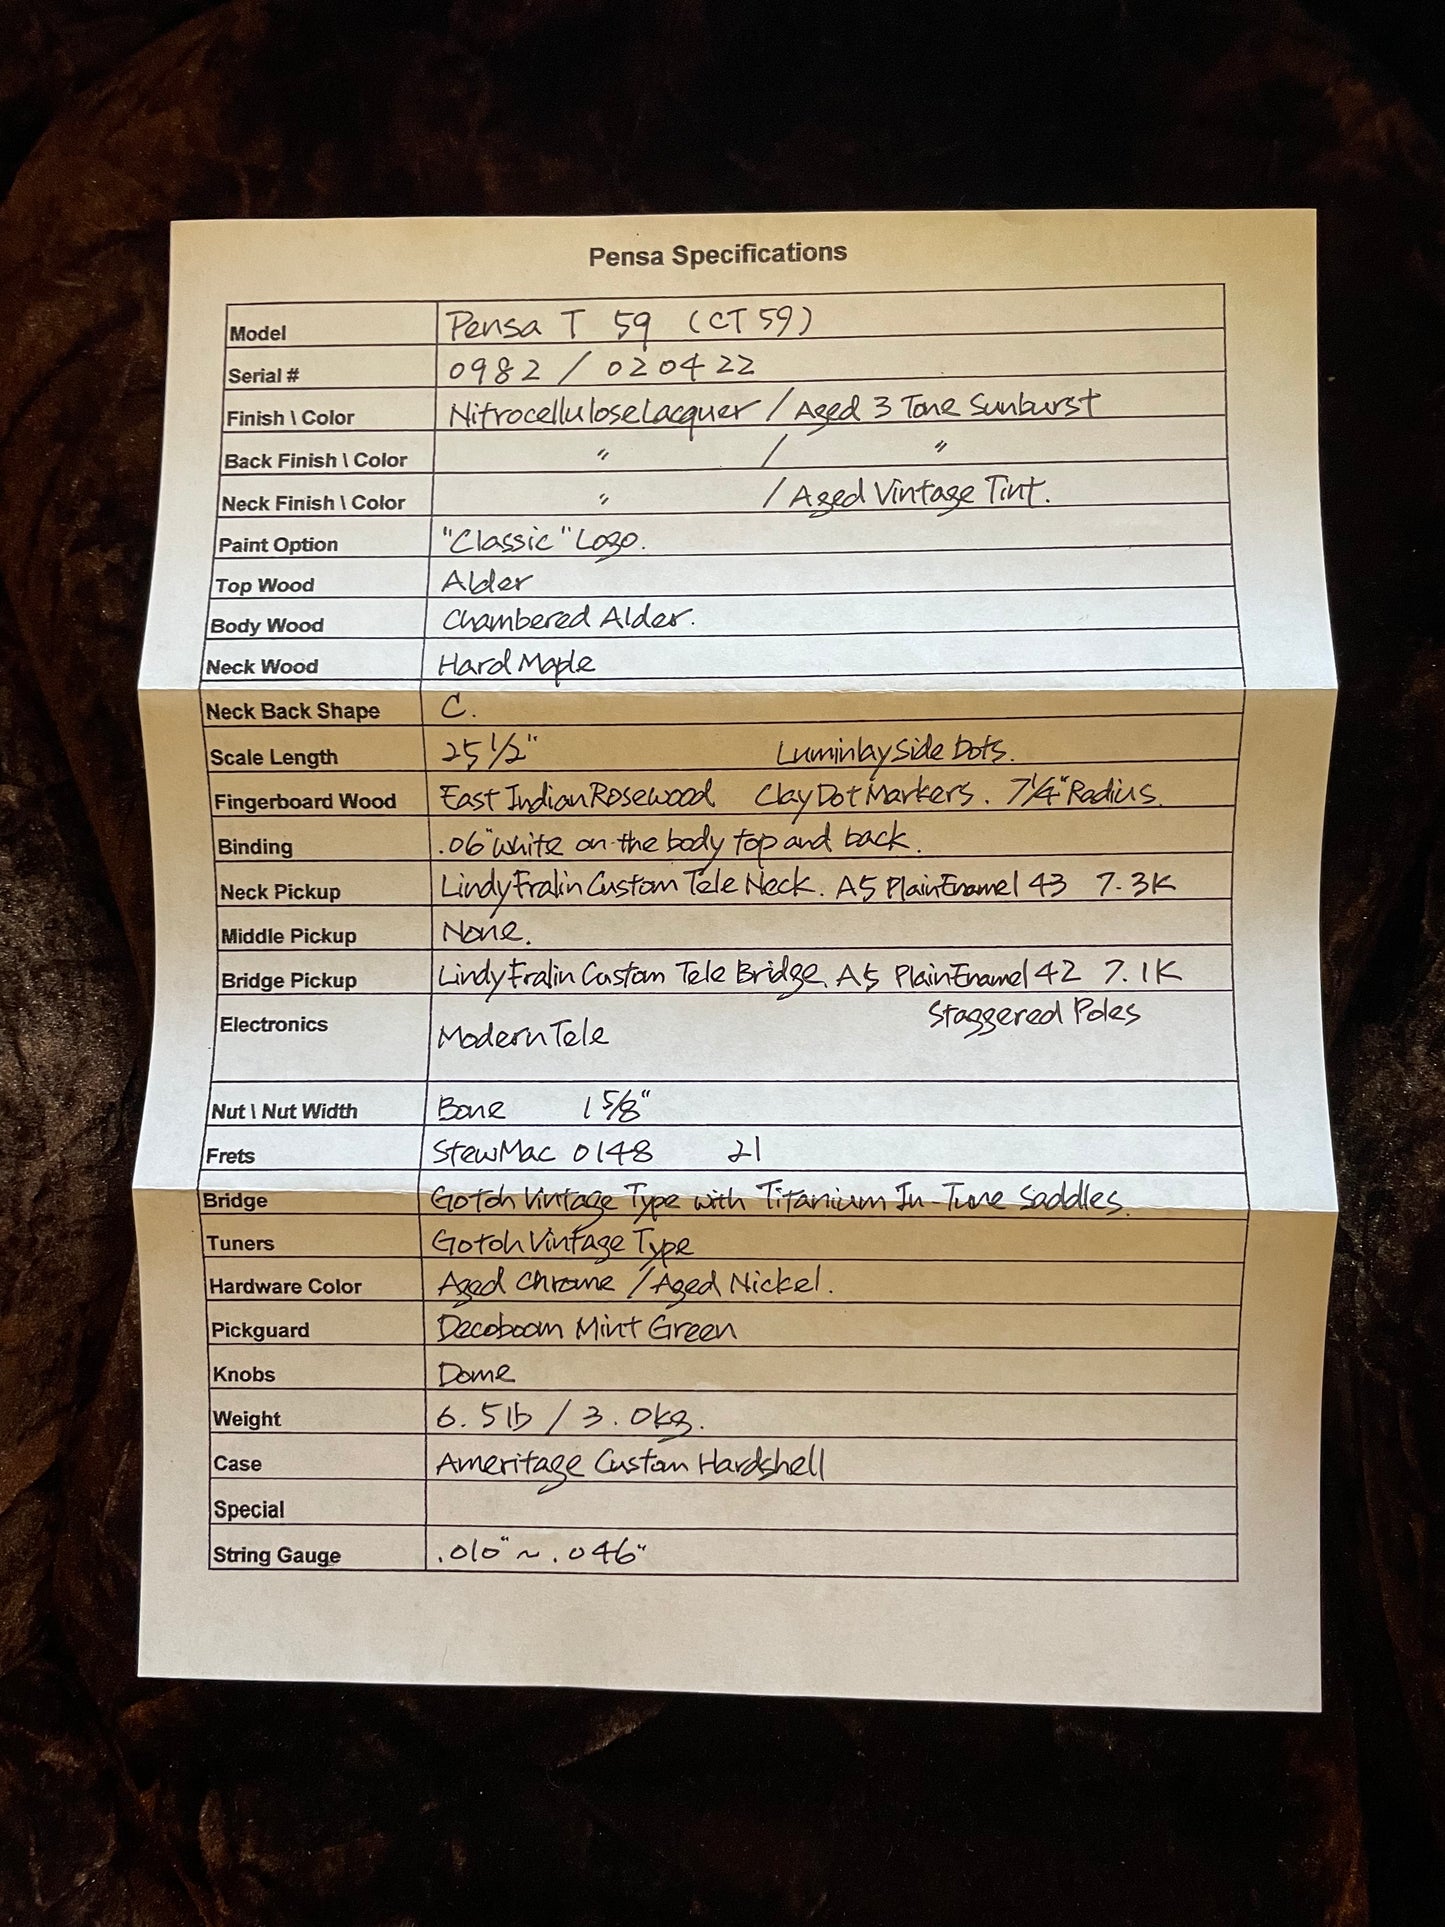 Pensa Specifications
Model Pensa T 59 (CT 59)
Serial # 0982 / 020422
Finish \ Color Nitrocellulose Lacquer / Aged 3 Tone Sunburst
Back Finish \ Color 〃 / 〃
Neck Finish \ Color 〃 / Aged Vintage Tint.
Paint Option "Classic" Logo.
Top Wood Alder
Body Wood Chambered Alder.
Neck Wood Hard Maple
Neck Back Shape C.
Scale Length 25 1/2" Luminlay Side Dots.
Fingerboard Wood East Indian Rosewood Clay Dot Markers. 7 1/4" Radius.
Binding .06" white on the body top and back.
Neck Pickup Lindy Fralin Custom Tele Neck. A5 Plain Enamel 43 7.3K
Middle Pickup None.
Bridge Pickup Lindy Fralin Custom Tele Bridge. A5 Plain Enamel 42 7.1K
Staggered Poles
Electronics Modern Tele
Nut \ Nut Width Bone 1 5/8"
Frets StewMac 0148 21
Bridge Gotoh Vintage Type with Titanium In-Tune Saddles.
Tuners Gotoh Vintage Type
Hardware Color Aged Chrome / Aged Nickel.
Pickguard Decoboom Mint Green
Knobs Dome
Weight 6.5 lb / 3.0kg.
Case Ameritage Custom Hardshell
Special
String Gauge .010" ~ .046"